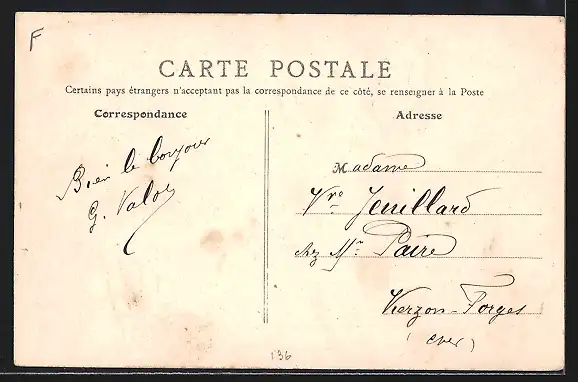 F
CARTE POSTALE
Certains pays étrangers n'acceptant pas la correspondance de ce côté, se renseigner à la Poste
Correspondance
Bien le bonjour
G. Valoy
Adresse
Madame
Vve Jenillard
chez Mr Paire
Vierzon-Forges
(Cher)
136